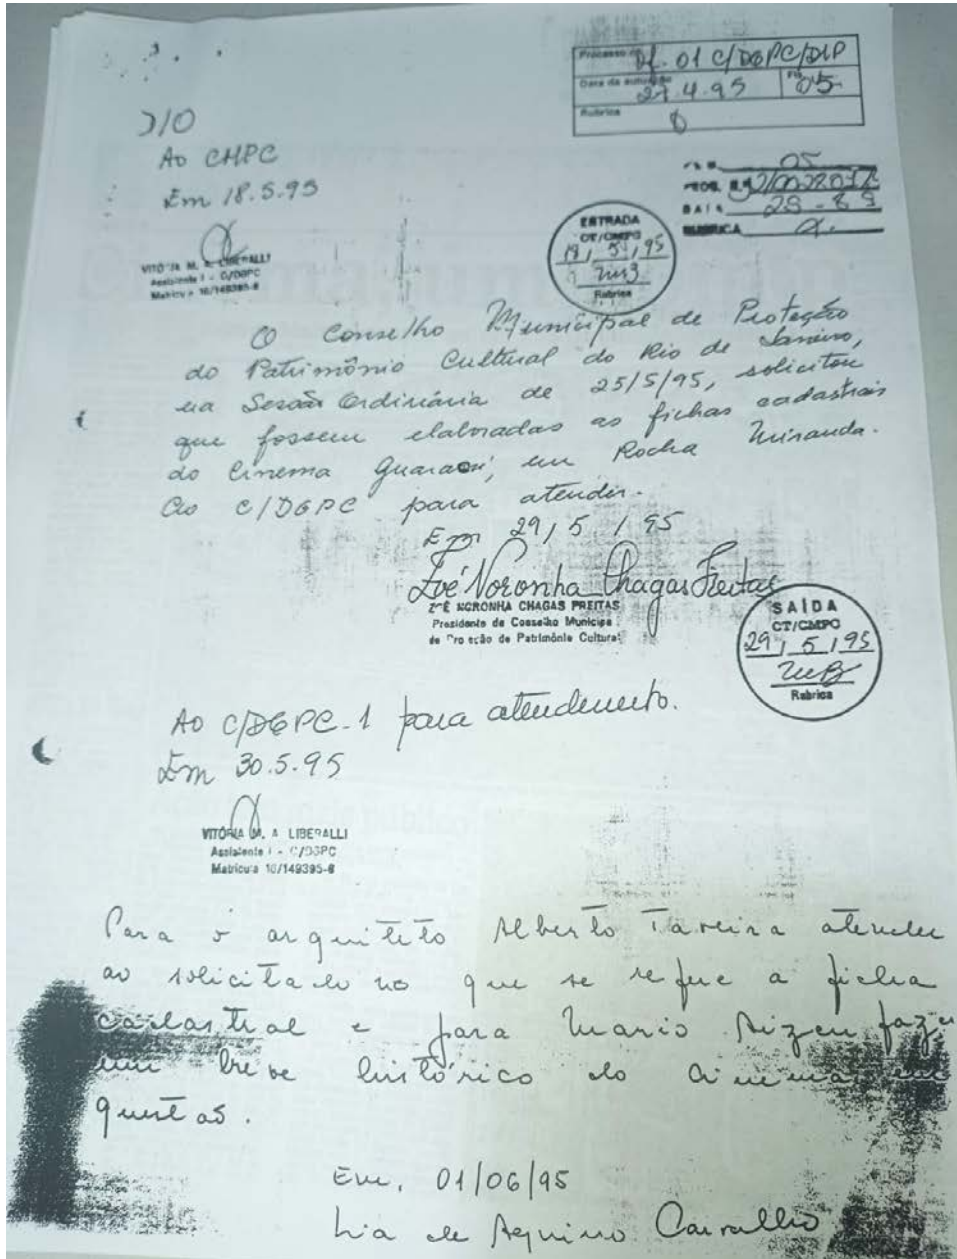 Processo nº Of. 01 C/DGPC/DIP
Data da autuação 27.4.95 Fls 05
Rubrica
Ao CMPC
Em 18.5.95
VITÓRIA M. A. LIBERALLI
Assistente I - C/DGPC
Matrícula 10/149395-8
05
PROC.
DATA
RUBRICA
ENTRADA
CT/CMPC
18/5/95
Rubrica
O Conselho Municipal de Proteção
do Patrimônio Cultural do Rio de Janeiro,
na Sesão Ordinária de 25/5/95, solicitou
que fossem elaboradas as fichas cadastrais
do Cinema Guaraci, em Rocha Miranda.
Ao C/DGPC para atender.
Em 29/5/95
Zoé Noronha Chagas Freitas
ZOÉ NORONHA CHAGAS FREITAS
Presidente de Conselho Municipal
de Proteção de Patrimônio Cultural
SAÍDA
CT/CMPC
29/5/95
Rubrica
Ao C/DGPC-1 para atendimento.
Em 30.5.95
VITÓRIA M. A LIBERALLI
Assistente I - C/DGPC
Matrícula 10/149395-8
Para o arquiteto Alberto Taveira atender
ao solicitado no que se refere a ficha
cadastral e para Mario Aizen fazer
um breve histórico do cinema em
questão.
Em, 01/06/95
Lia de Aquino Carvalho